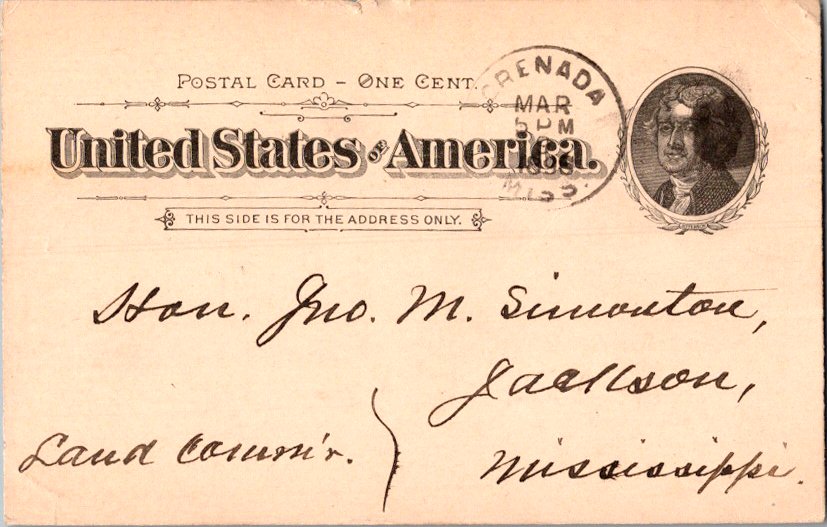 POSTAL CARD – ONE CENT.
United States OF America.
THIS SIDE IS FOR THE ADDRESS ONLY.
GRENADA
MAR
5 PM
MISS.
Hon. Jno. M. Simonton,
Jackson,
Land Commi'r.
Mississippi.